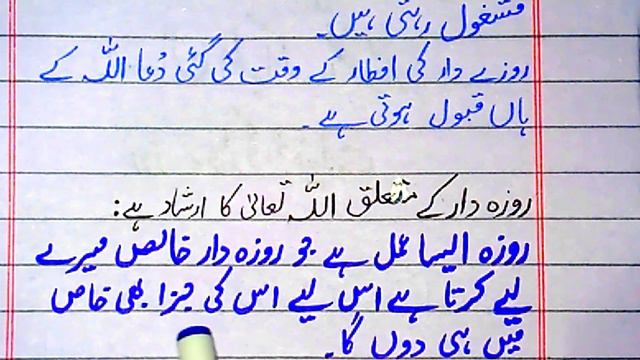 مشغول رہتی ہیں۔
روزے دار کی افطار کے وقت کی گئی دُعا اللہ کے
ہاں قبول ہوتی ہے۔
روزہ دار کے متعلق اللہ تعالیٰ کا ارشاد ہے:
روزہ ایسا عمل ہے جو روزہ دار خالص میرے
لیے کرتا ہے اس لیے اس کی جزا بھی خاص
میں ہی دوں گا۔